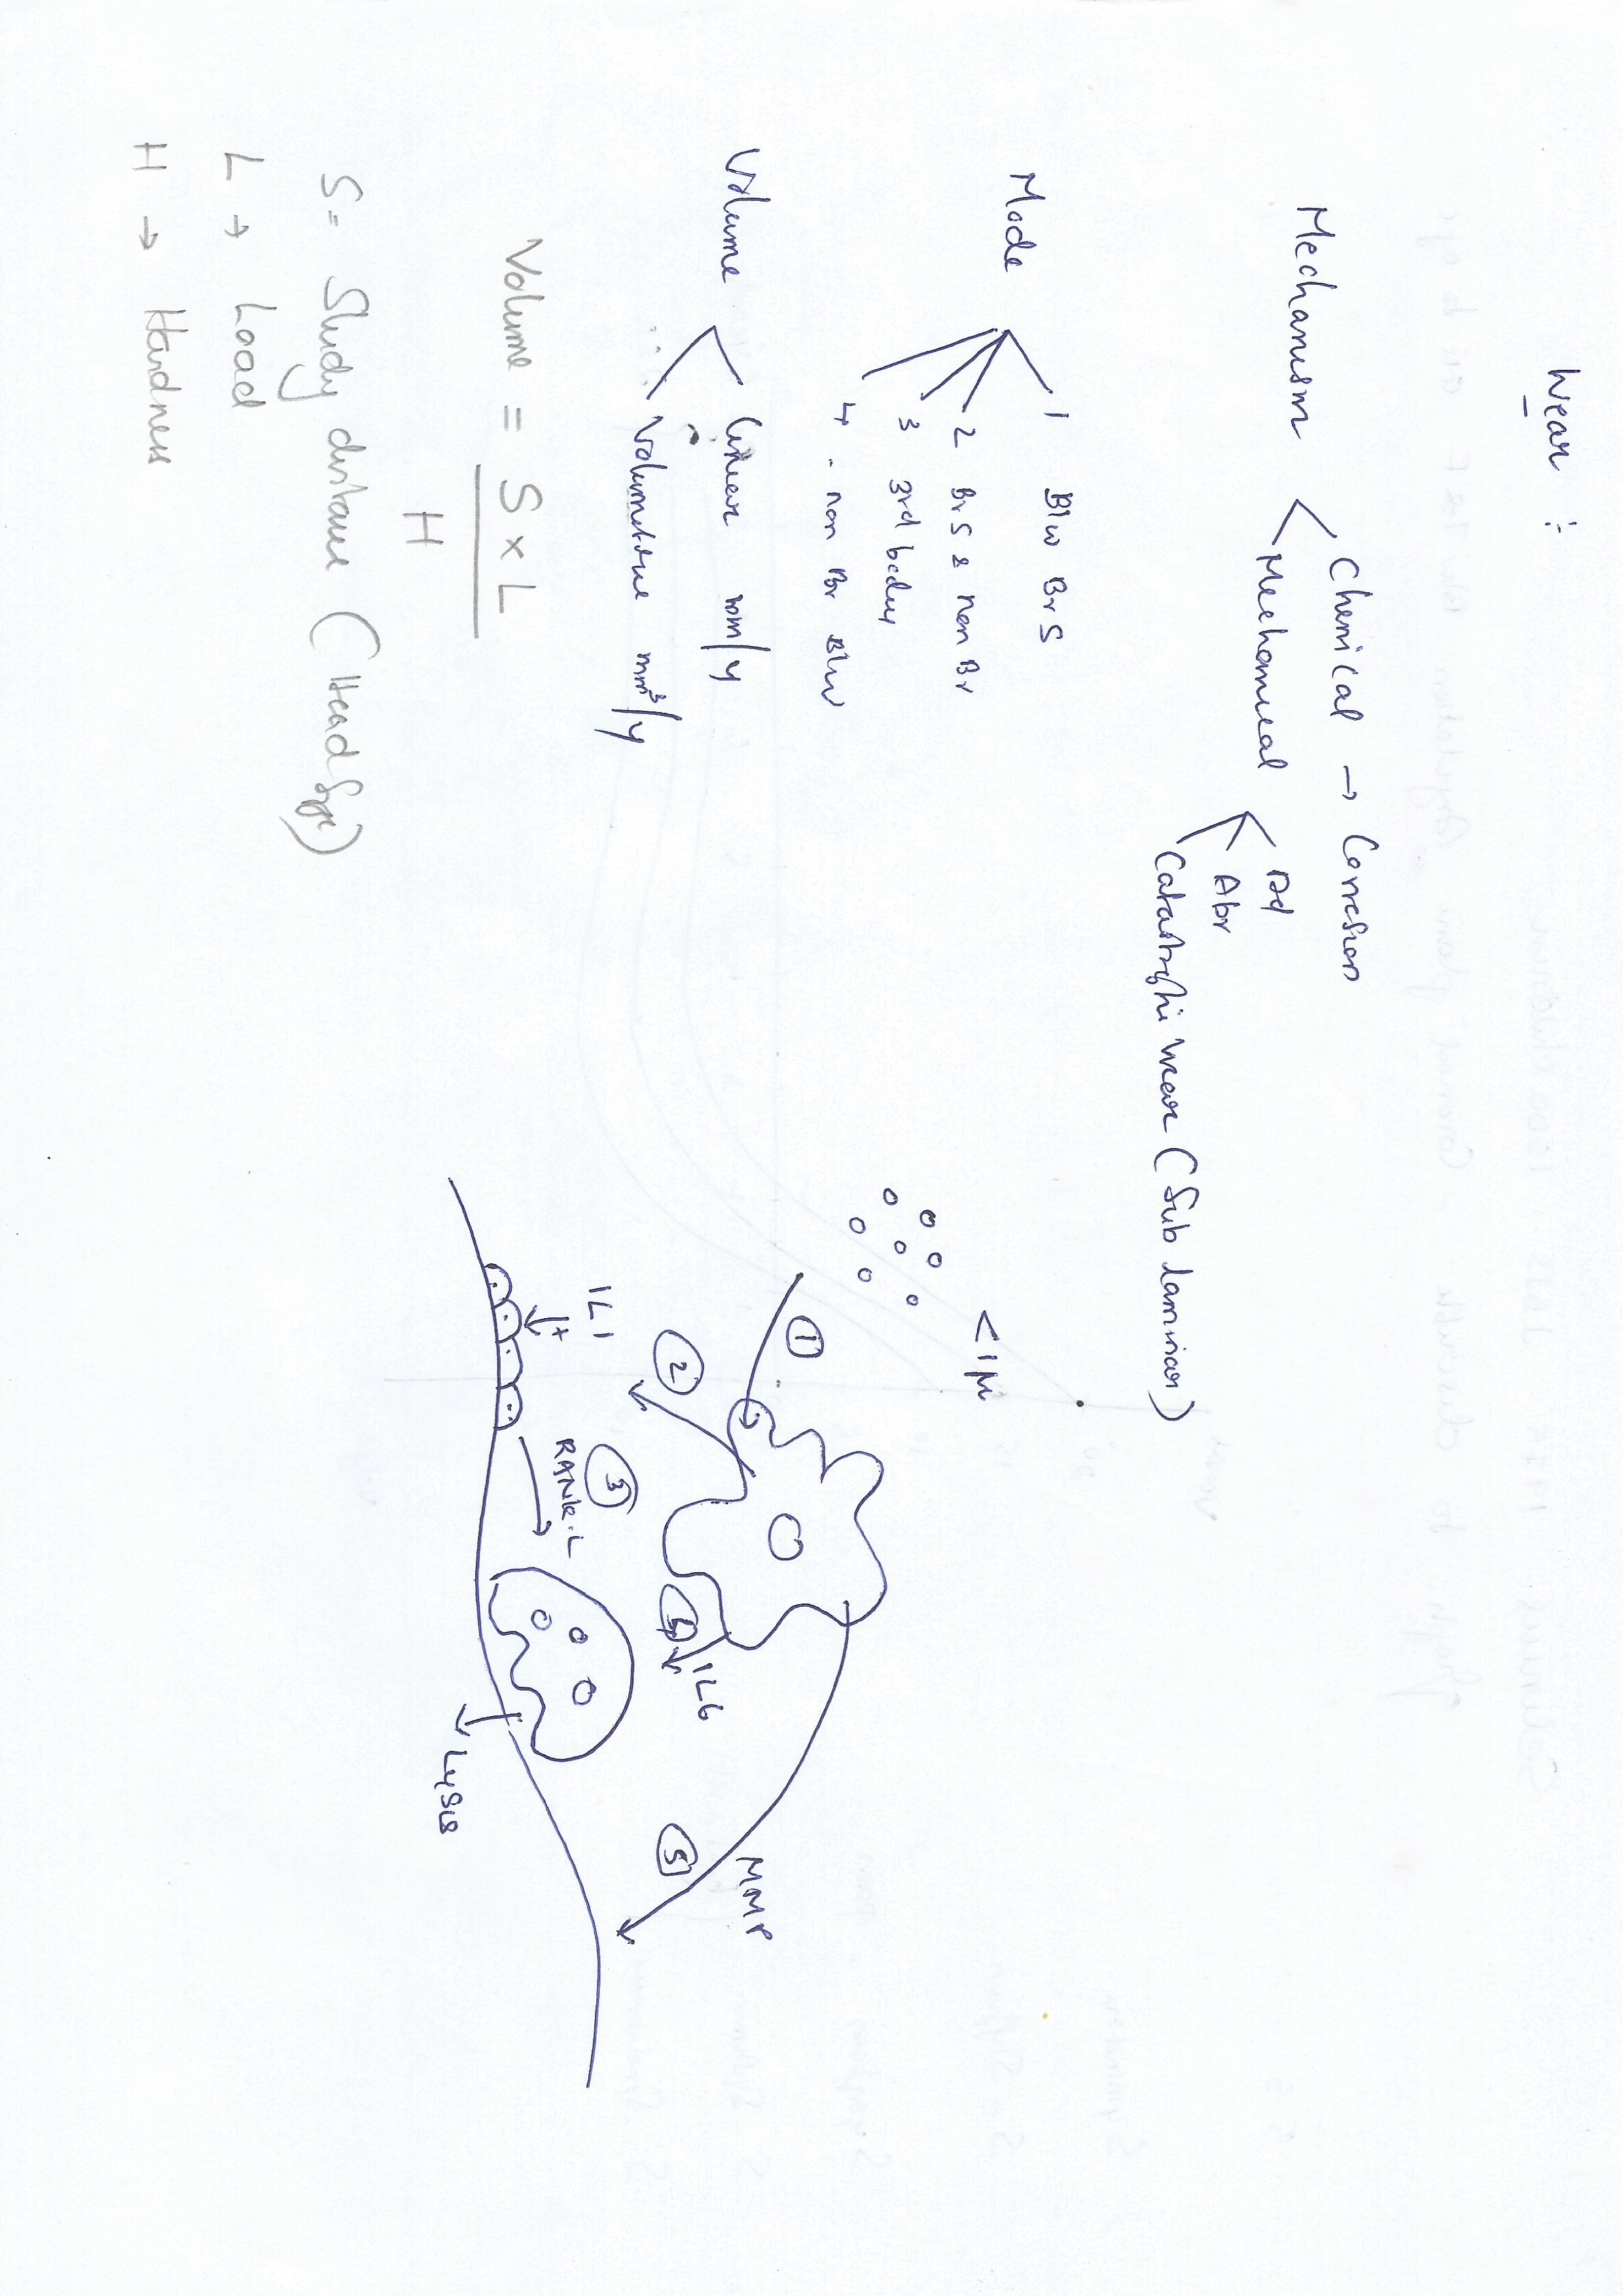 Wear :-
Mechanism
Chemical → Corrosion
Mechanical
Ad
Abr
Catastrophi wear (Sub laminar)
Mode
1 Blw Br S
2 Br S & non Br
3 3rd body
4 - non Br Blw
Volume
linear mm/y
Volumetric mm³/y
Volume = S x L
H
S =
distance (Head
L → Load
H → Hardness
< 1 μ
1
MMP
2
IL6
5
3
IL1
+
RANK.L
Lysis